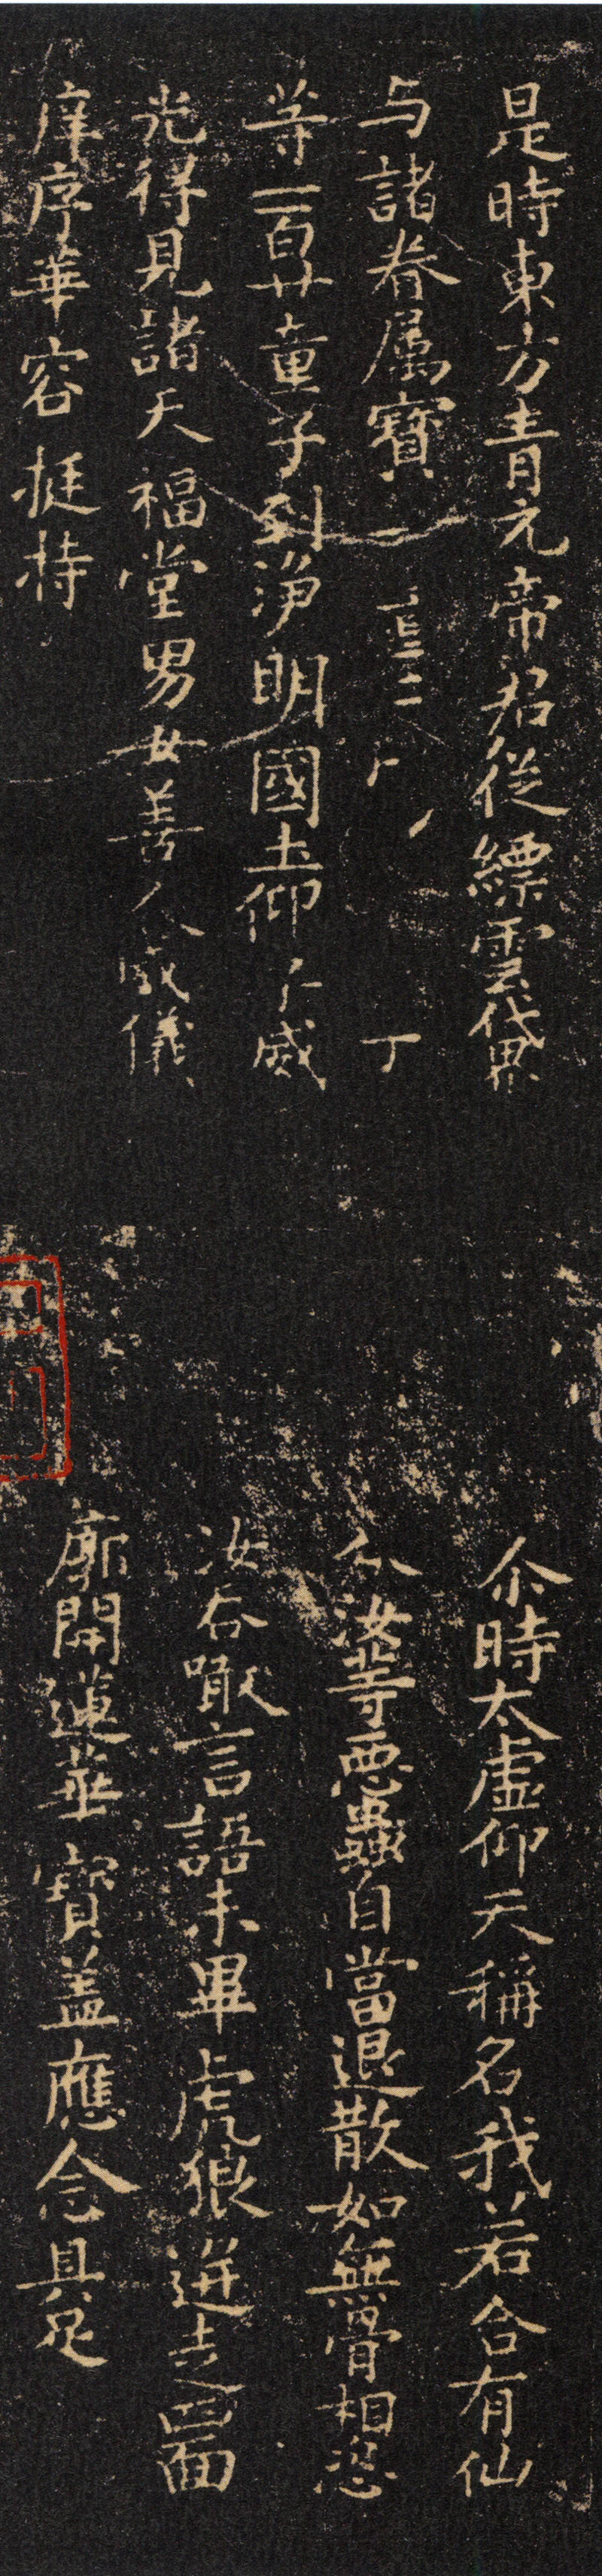 是時東方青元帝君從縹雲世界
与諸眷属寶
等一百廿童子到淨明國土仰 威
光得見諸天福堂男女善人威儀
庠序華容挺特
尒時太虛仰天稱名我若合有仙
分汝等惡蟲自當退散如無骨相恣
汝吞噉言語未畢虎狼迸去四面
廓開蓮華寶盖應念具足